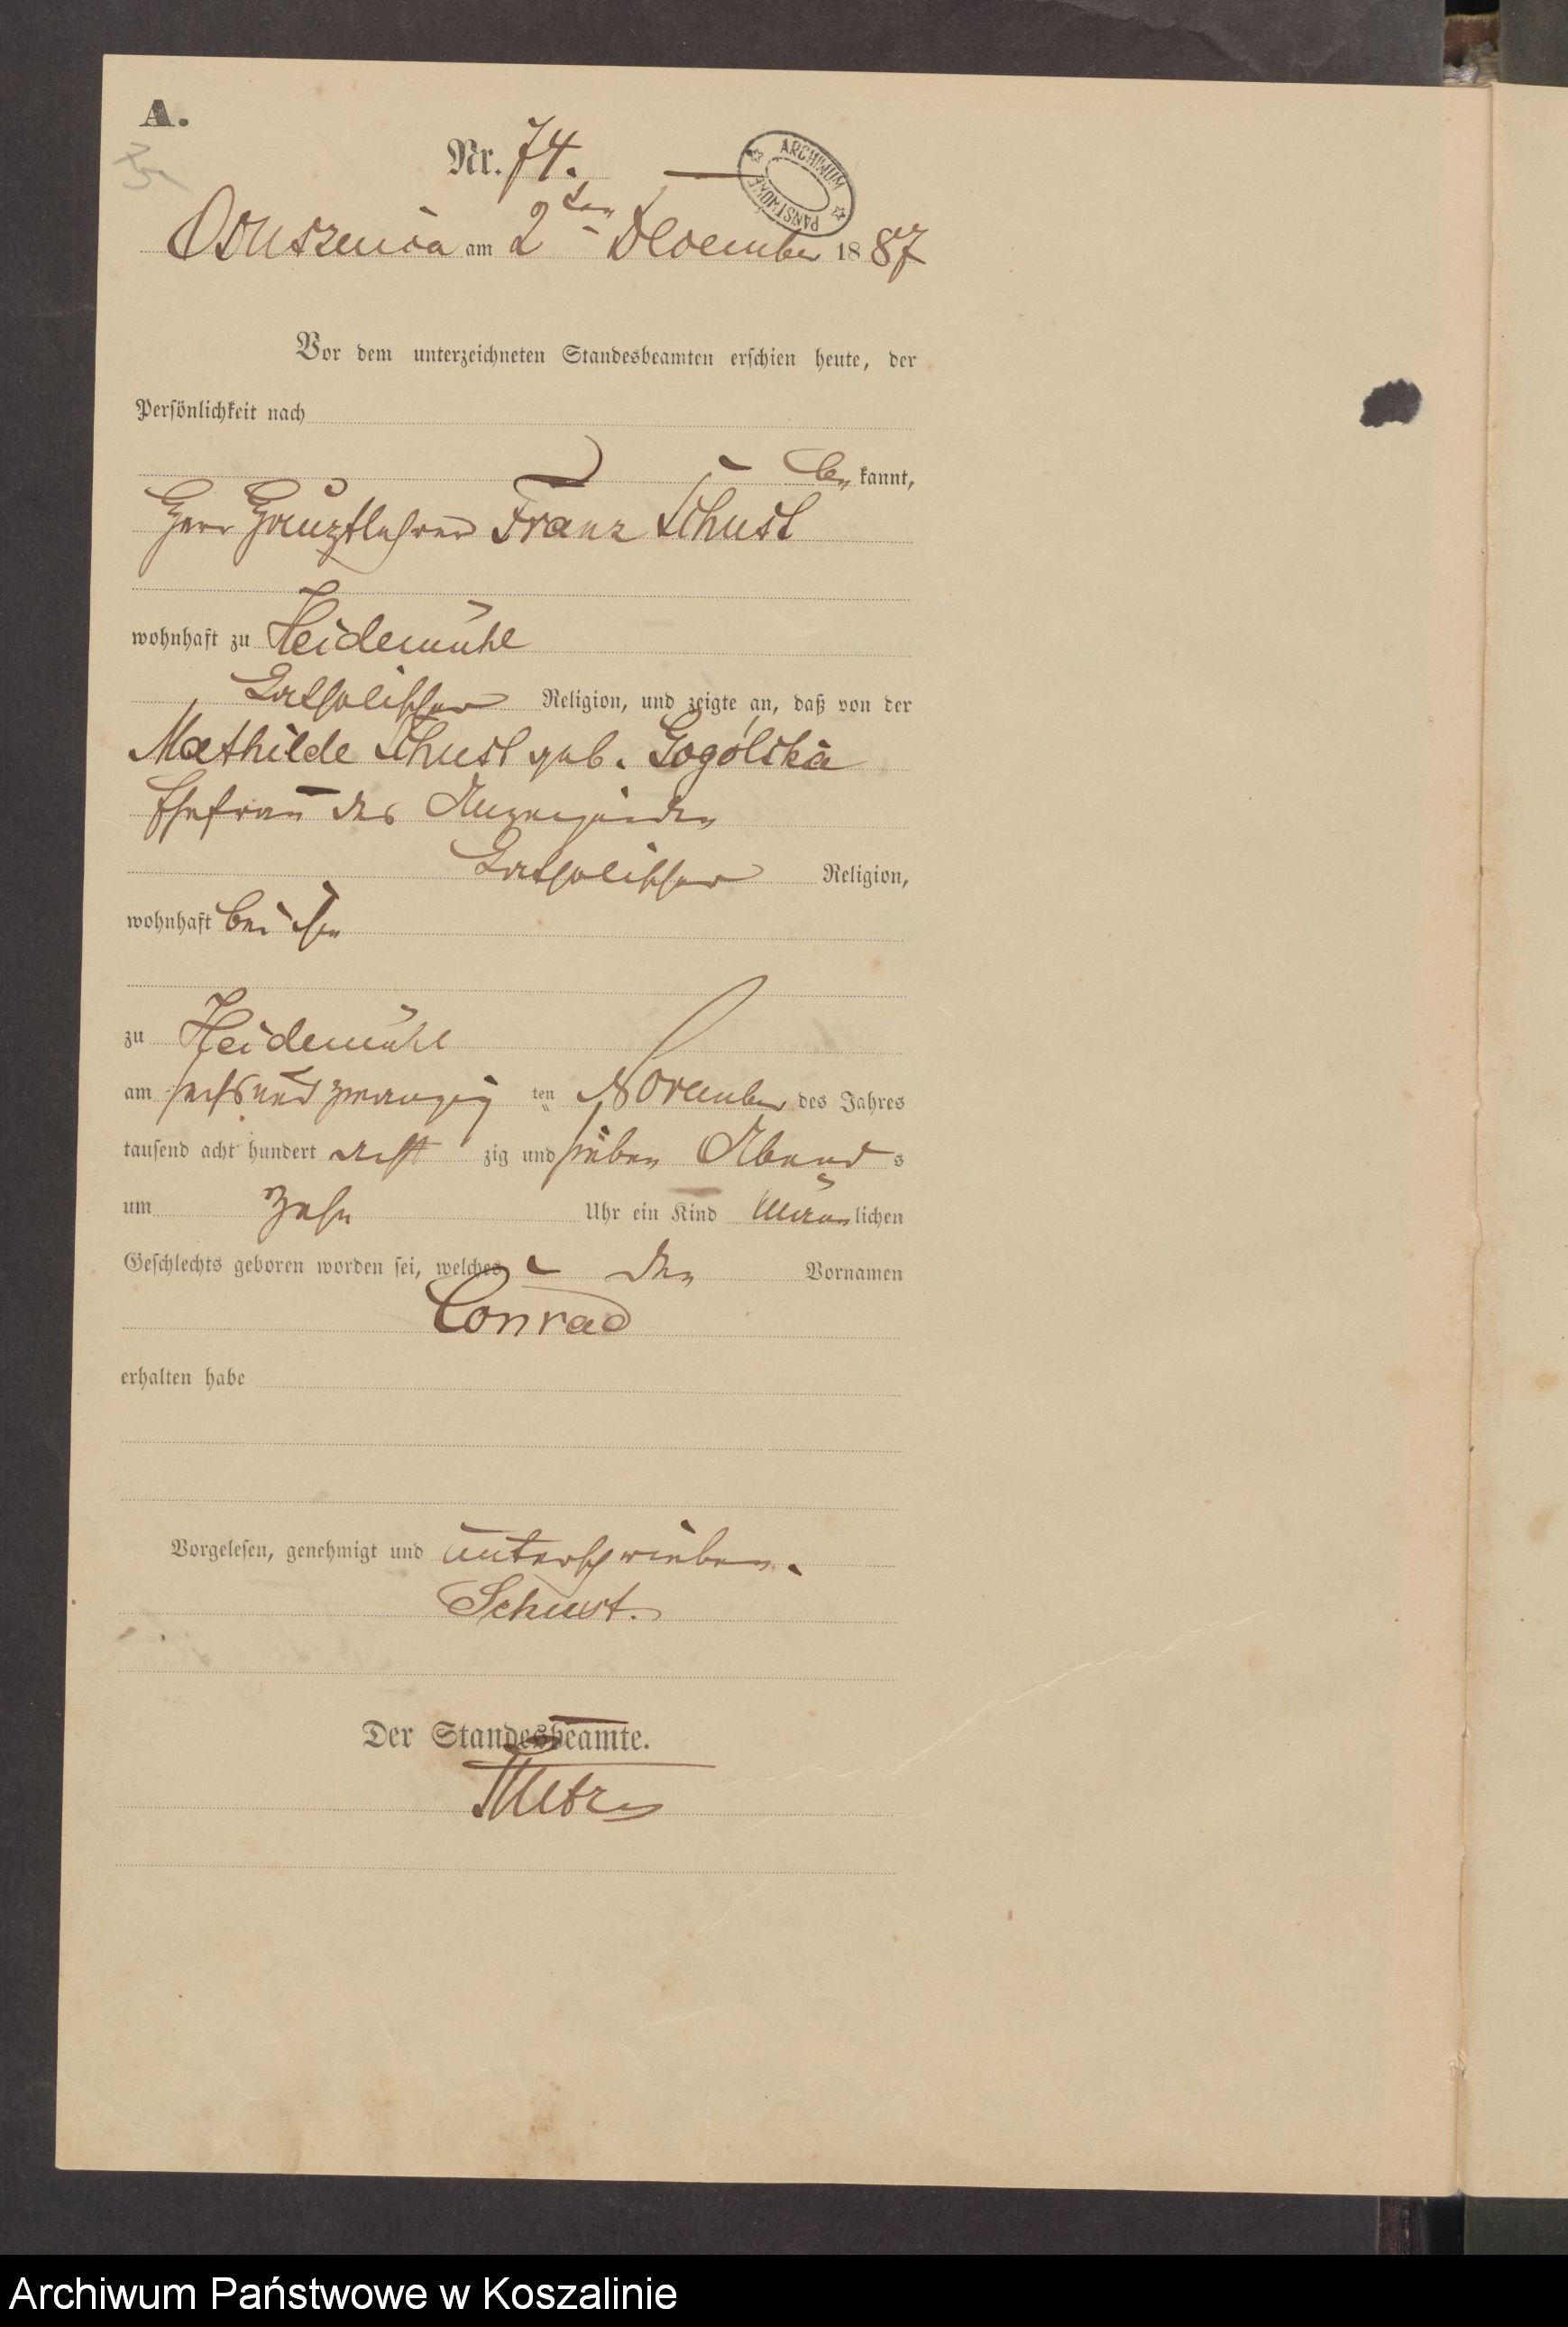 A.
Nr. 74.
ARCHIWUM PAŃSTWOWE
Ossuszenica am 2ten December 1887
Vor dem unterzeichneten Standesbeamten erschien heute, der
Persönlichkeit nach
bekannt,
Herr Hauptlehrer Franz Schust
wohnhaft zu Heidemühl
katholischer Religion, und zeigte an, daß von der
Mathilde Schust geb. Gogolska
Ehefrau des Anzeigenden
katholischer Religion,
wohnhaft bei ihm
zu Heidemühl
am sechsundzwanzigten November des Jahres
tausend acht hundert acht zig und sieben Abends
um zehn Uhr ein Kind männlichen
Geschlechts geboren worden sei, welches den Vornamen
Conrad
erhalten habe
Vorgelesen, genehmigt und unterschrieben.
Schust.
Der Standesbeamte.
Archiwum Państwowe w Koszalinie